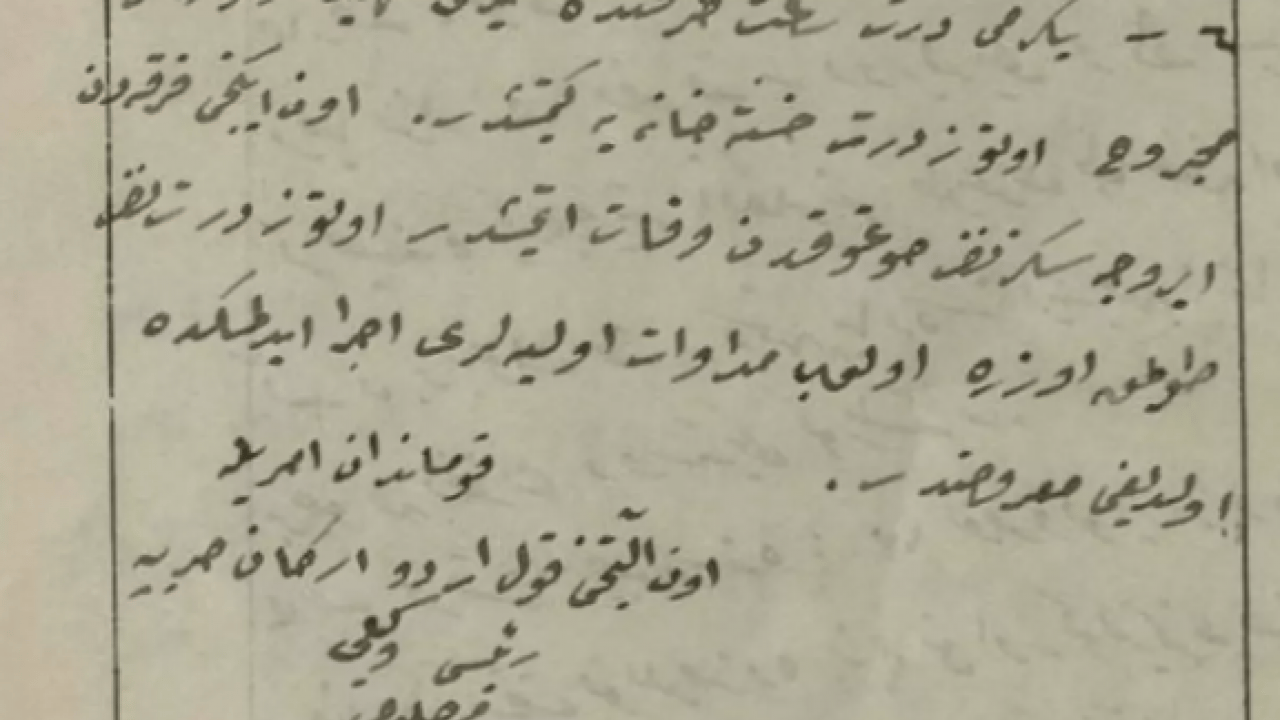 ٤ – یكرمی درت ساعت ظرفنده
مجروح اوتوز درت خسته خانه یه كیتمشدر. اون ایكنجی فرقه دن
سكز نفر صوغوقدن وفات ایتمشدر اوتوز درت نفر
طوكمق اوزره اولوب مداوات اولیه لری اجرا ایدلمكده
اولدیغی معروضدر.
قوماندان امریله
اون آلتنجی قول اردو اركان حربیه
رئیسی وكیلی